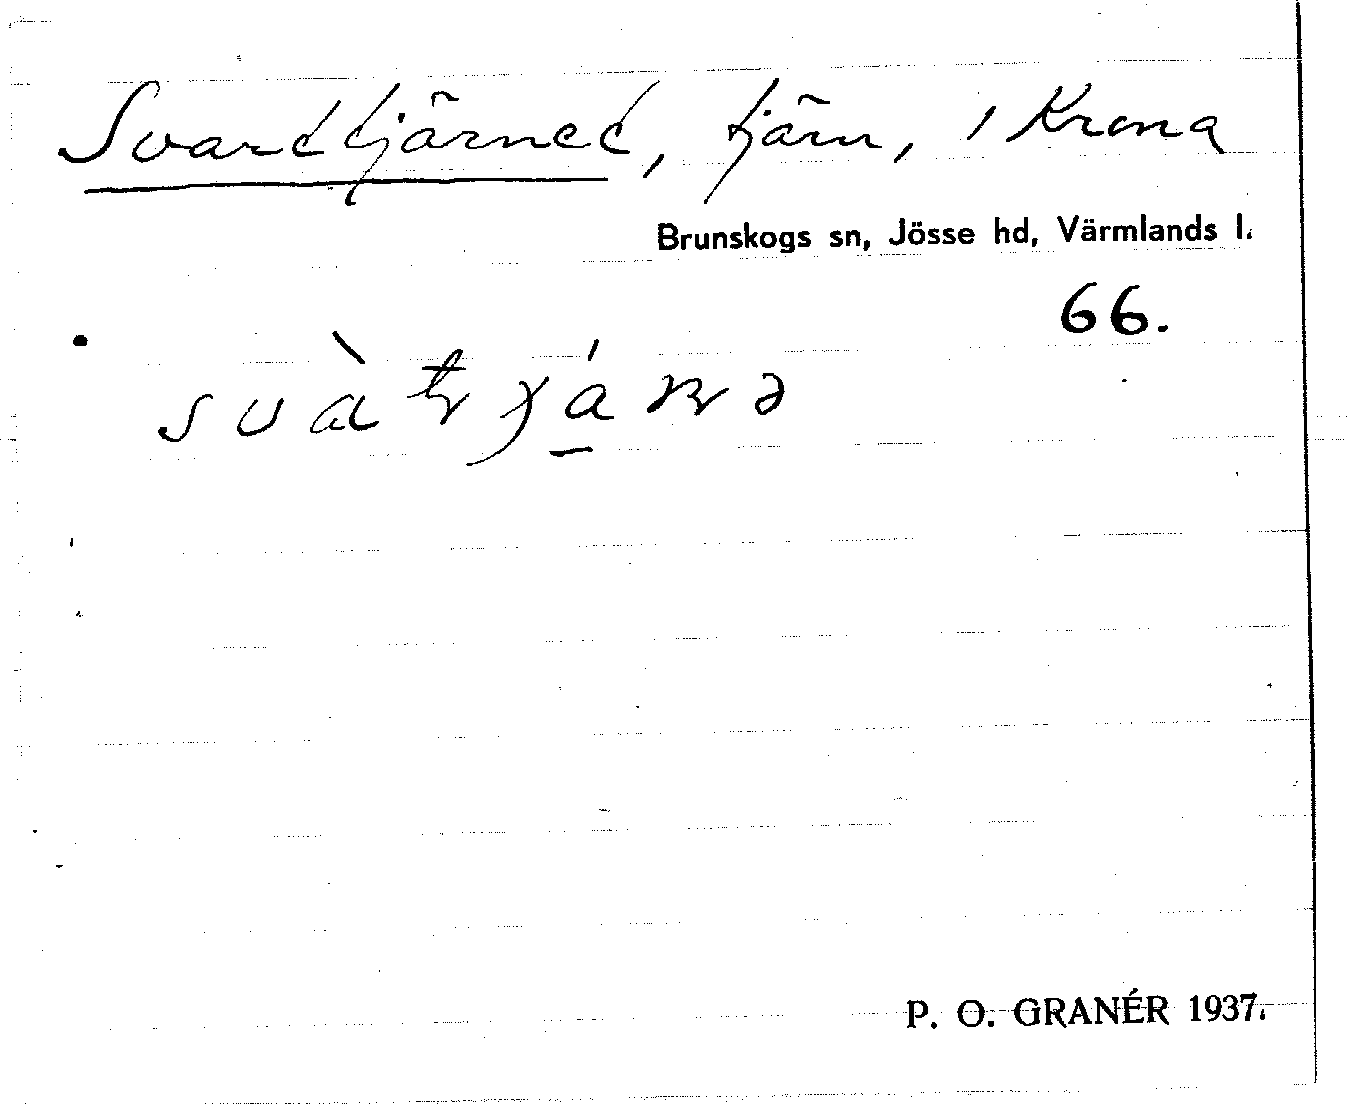 Svarttjärnet, tjärn, i Krona
Brunskogs sn, Jösse hd, Värmlands l.
66.
P. O. GRANÉR 1937.